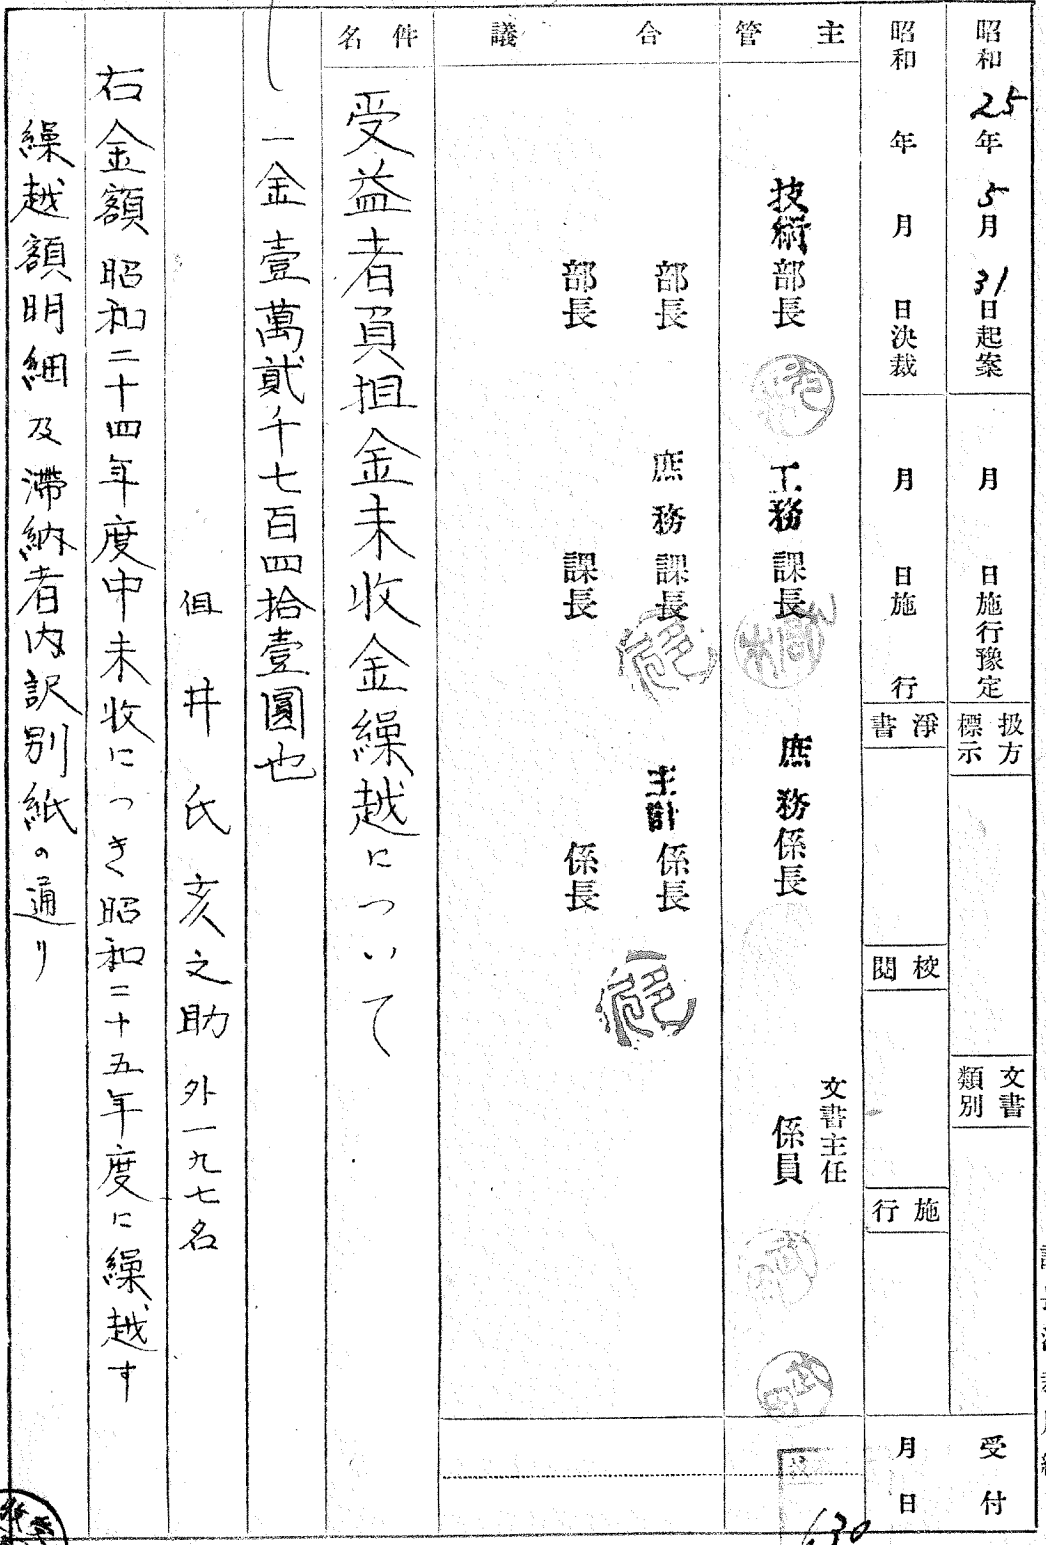 昭和25年5月31日起案
月 日施行豫定
扱方標示
文書類別
受付
昭和 年 月 日決裁
月 日施行
淨書
校閲
施行
月日
主管
技術部長
工務課長
庶務係長
文書主任
係員
合議
部長
庶務課長
主計係長
部長
課長
係長
630
件名
受益者負担金未收金繰越について
一金壹萬貳千七百四拾壹圓也
但井氏亥之助外一九七名
右金額昭和二十四年度中未收につき昭和二十五年度に繰越す
繰越額明細及滯納者内訳別紙の通り